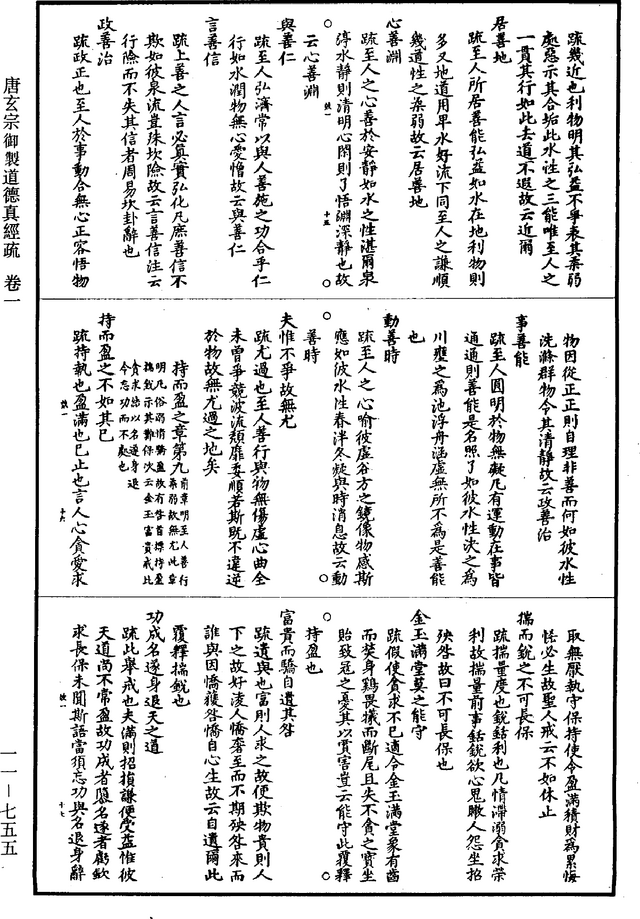 疏幾近也利物明其弘益不爭表其柔弱
處惡示其含垢此水性之三能唯至人之
一貫其行如此去道不遐故云近爾
居善地
疏至人所居善能弘益如水在地利物則
多又地道用卑水好流下同至人之謙順
幾道性之柔弱故云居善地
心善淵
疏至人之心善於安靜如水之性湛爾泉
渟水靜則清明心閑則了悟淵深靜也故
云心善淵
與善仁
疏至人弘濟常以與人善施之功合乎仁
行如水潤物無心愛憎故云與善仁
言善信
疏上善之人言必真實弘化凡庶善信不
欺如彼泉流豈殊坎險故云言善信注云
行險而不失其信者周易坎卦辭也
政善治
疏政正也至人於事動合無心正容悟物
物因從正正則自理非善而何如彼水性
洗滌群物令其清靜故云政善治
事善能
疏至人圓明於物無礙凡有運動在事皆
通通則善能是名照了如彼水性決之為
川壅之為池浮舟涵虛無所不為是善能
也
動善時
疏至人之心喻彼虛谷方之鏡像物感斯
應如彼水性春泮冬凝與時消息故云動
善時
夫惟不爭故無尤
疏尤過也至人善行與物無傷虛心曲全
未曾爭競波流頹靡委順若斯既不違逆
於物故無尤過之地矣
持而盈之章第九
前章明至人善行柔弱故無尤此章明凡俗溺情驕盈故有咎首標持盈揣銳示其難保次云金玉富貴戒比貪求結以名遂身退令忘功而不處也
持而盈之不如其已
疏持執也盈滿也已止也言人心貪愛求
取無厭執守保持使令盈滿積財為累悔
恡必生故聖人戒云不如休止
揣而銳之不可長保
疏揣量度也銳銛利也凡情滯溺貪求榮
利故揣量前事銛銳欲心鬼瞰人怨坐招
殃咎故曰不可長保也
金玉滿堂莫之能守
疏假使貪求不已適令金玉滿堂象有齒
而焚身鷄畏犧而斷尾且失不貪之寶坐
貽致寇之憂其以賈害豈云能守此覆釋
持盈也
富貴而驕自遺其咎
疏遺與也富則人求之故便欺物貴則人
下之故好淩人憍奢至而不期殃咎來而
誰與因憍獲咎憍自心生故云自遺爾此
覆釋揣銳也
功成名遂身退天之道
疏此舉戒也夫滿則招損謙便受益惟彼
天道尚不常盈故功成者隳名遂者虧欲
求長保未聞斯語當須忘功與名退身辭
唐玄宗御製道德真經疏 卷一
一一-七五五